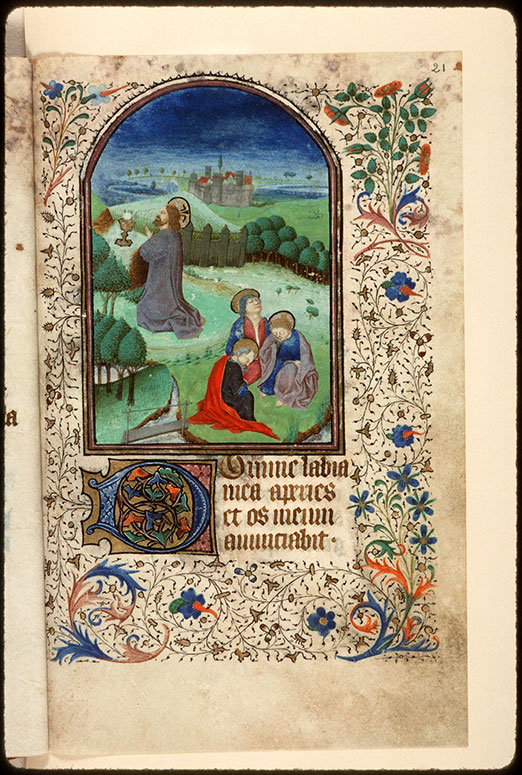 21
Domine labia
mea aperies
et os meum
anunciabit.
a